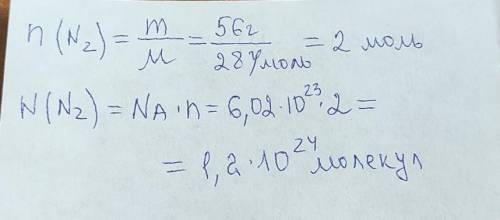 n(N₂) = m/M = 56г/28г/моль = 2 моль
N(N₂) = NA·n = 6,02·10²³·2 =
= 1,2·10²⁴ молекул